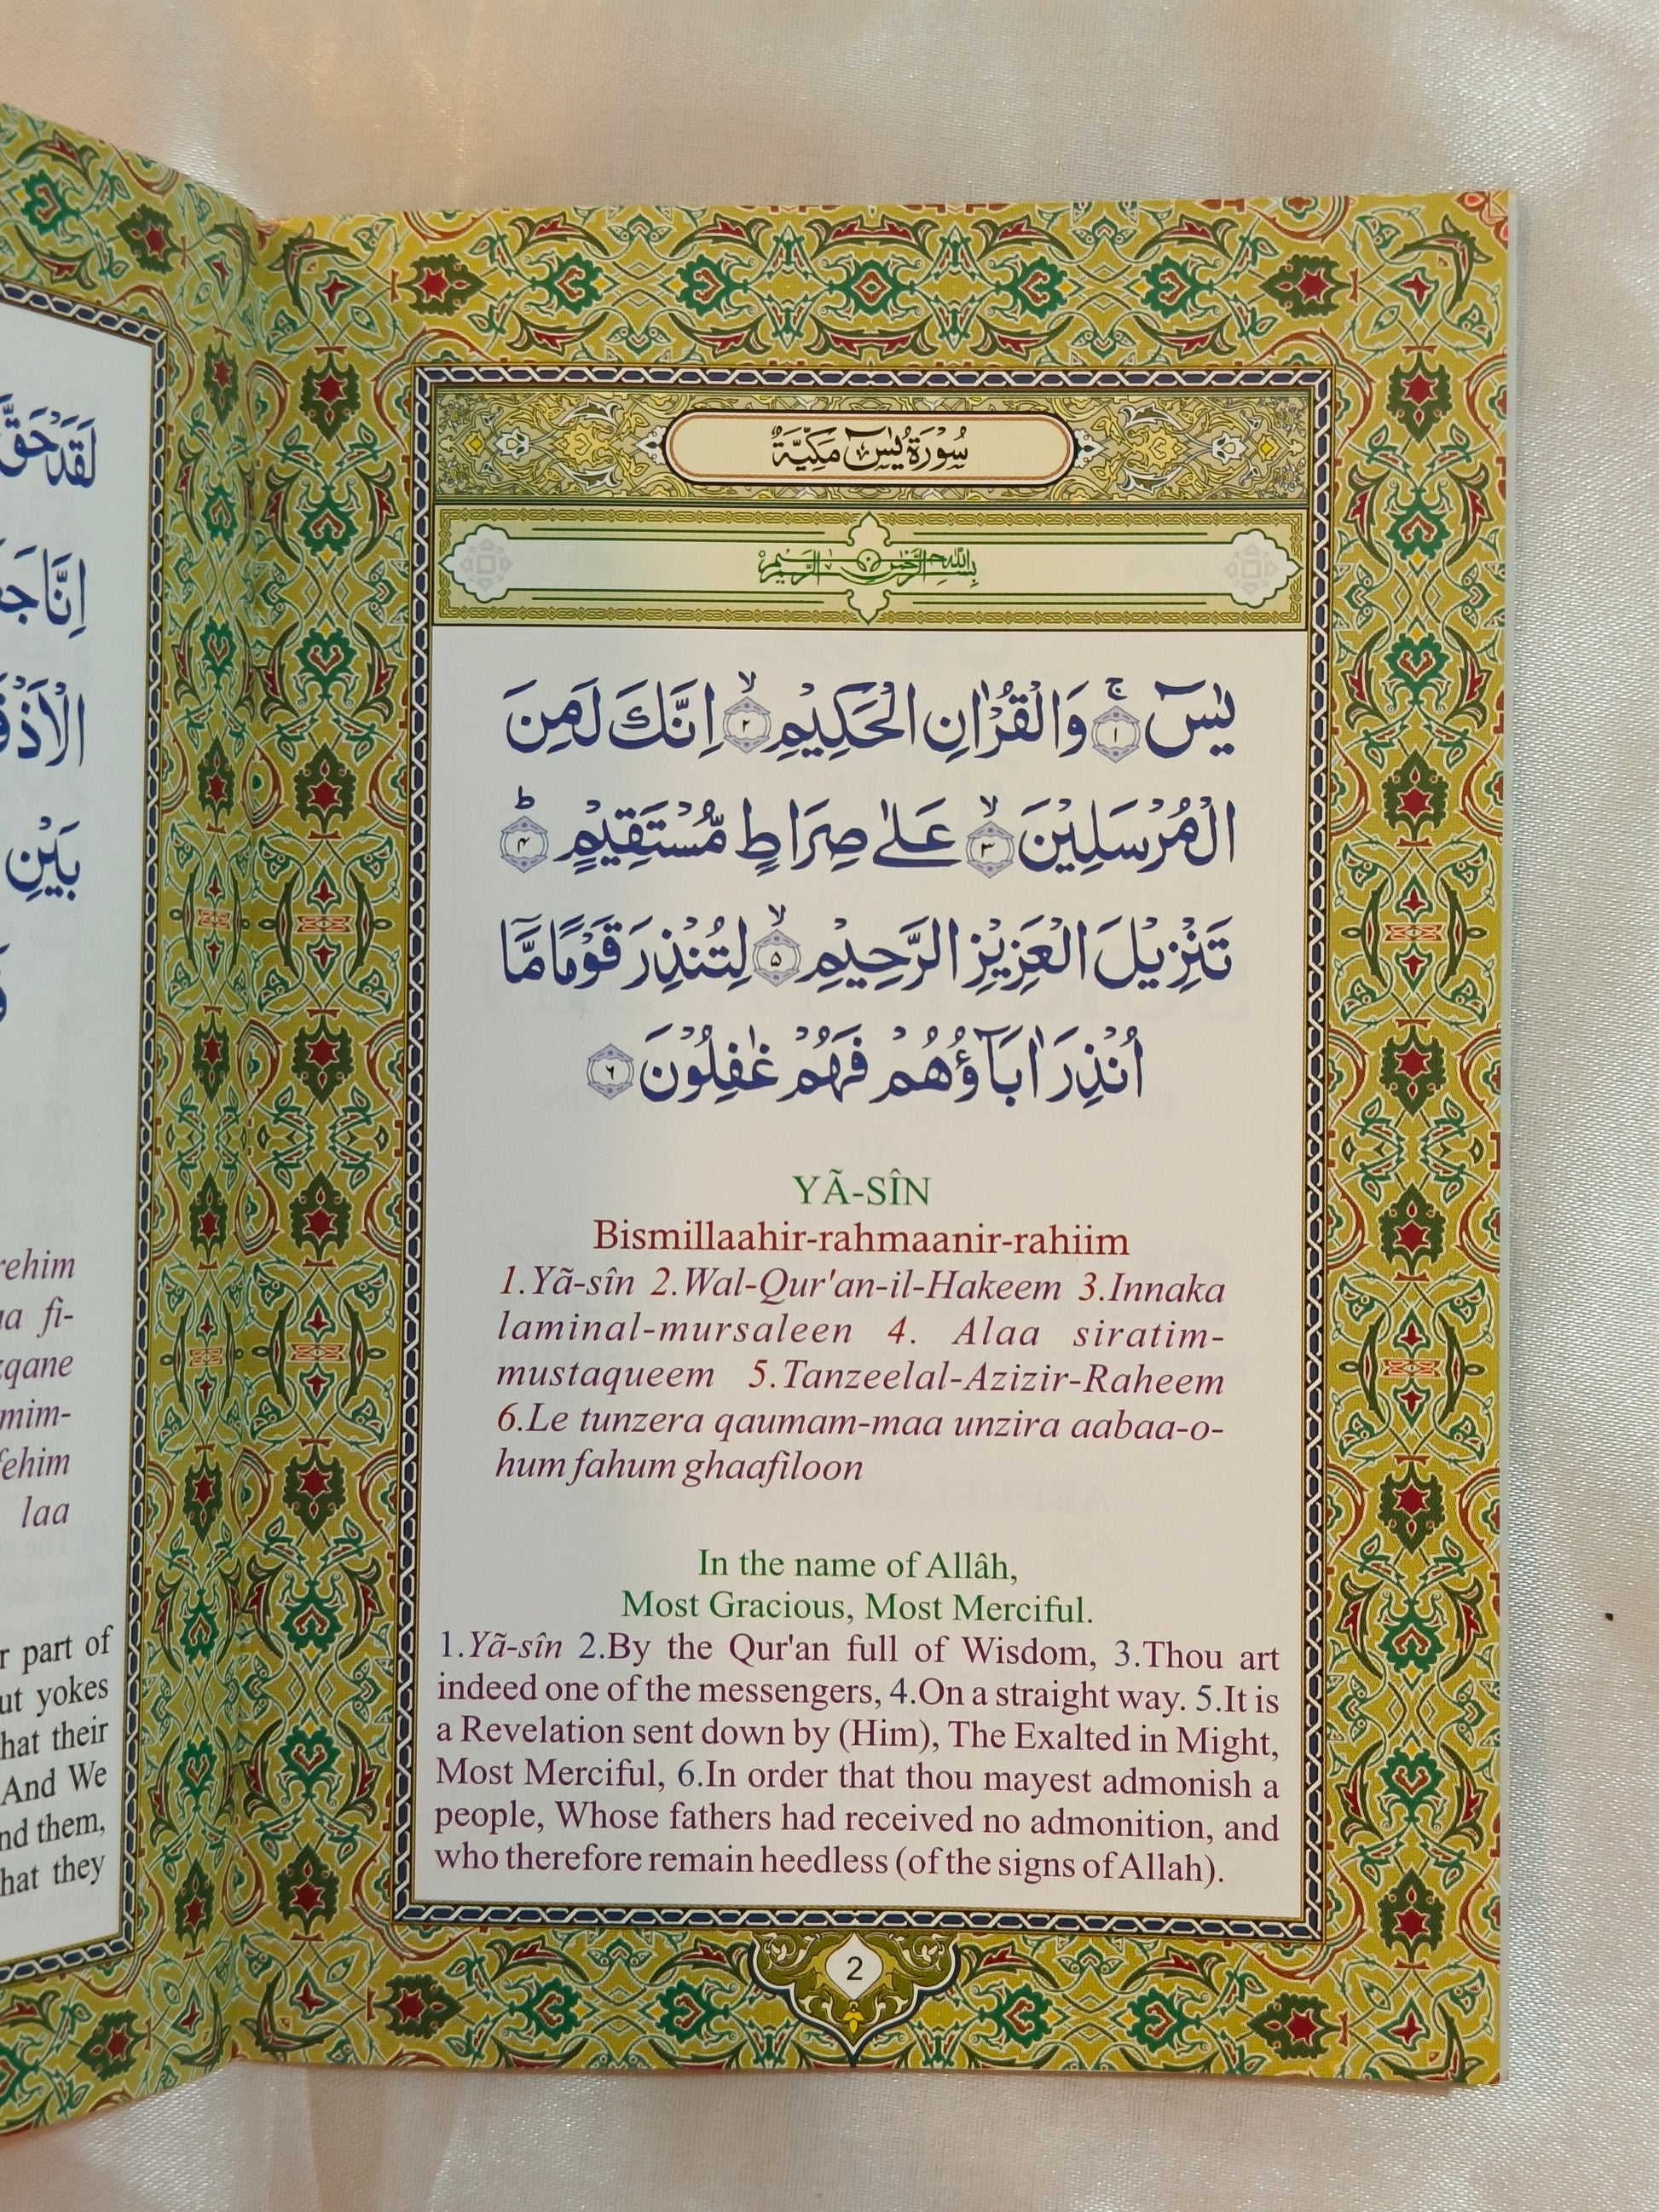 سُوْرَةُ يٰسٓ مَكِّيَّةٌ
بِسْمِ اللّٰهِ الرَّحْمٰنِ الرَّحِيْمِ
يٰسٓ ۚ﴿۱﴾ وَالْقُرْاٰنِ الْحَكِيْمِ ۙ﴿۲﴾ اِنَّكَ لَمِنَ
الْمُرْسَلِيْنَ ۙ﴿۳﴾ عَلٰى صِرَاطٍ مُّسْتَقِيْمٍ ؕ﴿۴﴾
تَنْزِيْلَ الْعَزِيْزِ الرَّحِيْمِ ۙ﴿۵﴾ لِتُنْذِرَ قَوْمًا مَّاۤ
اُنْذِرَ اٰبَآؤُهُمْ فَهُمْ غٰفِلُوْنَ ﴿۶﴾
YÃ-SÎN
Bismillaahir-rahmaanir-rahiim
1.Yã-sîn 2.Wal-Qur'an-il-Hakeem 3.Innaka
laminal-mursaleen 4. Alaa siratim-
mustaqueem 5.Tanzeelal-Azizir-Raheem
6.Le tunzera qaumam-maa unzira aabaa-o-
hum fahum ghaafiloon
In the name of Allâh,
Most Gracious, Most Merciful.
1.Yã-sîn 2.By the Qur'an full of Wisdom, 3.Thou art
indeed one of the messengers, 4.On a straight way. 5.It is
a Revelation sent down by (Him), The Exalted in Might,
Most Merciful, 6.In order that thou mayest admonish a
people, Whose fathers had received no admonition, and
who therefore remain heedless (of the signs of Allah).
2
لَقَدْ حَقَّ
بَيْنِ
laa
part of
yokes
their
And We
them,
they